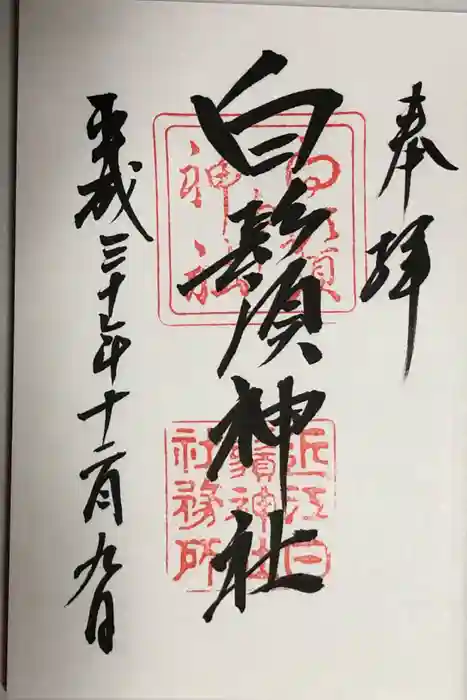 奉拝
白鬚神社
平成三十年十二月九日
白鬚
神社
近江白
鬚神社
社務所